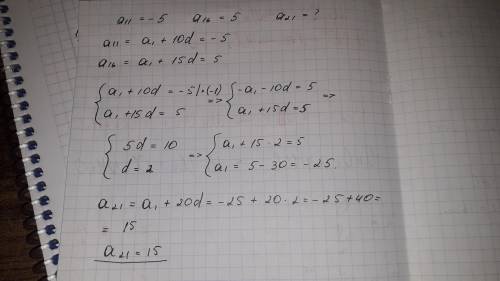 a₁₁ = -5 a₁₆ = 5 a₂₁ = ?
a₁₁ = a₁ + 10d = -5
a₁₆ = a₁ + 15d = 5
{ a₁ + 10d = -5 |·(-1) => { -a₁ - 10d = 5 =>
{ a₁ + 15d = 5 { a₁ + 15d = 5
{ 5d = 10 => { a₁ + 15 · 2 = 5
{ d = 2 { a₁ = 5 - 30 = -25.
a₂₁ = a₁ + 20d = -25 + 20 · 2 = -25 + 40 =
= 15
a₂₁ = 15